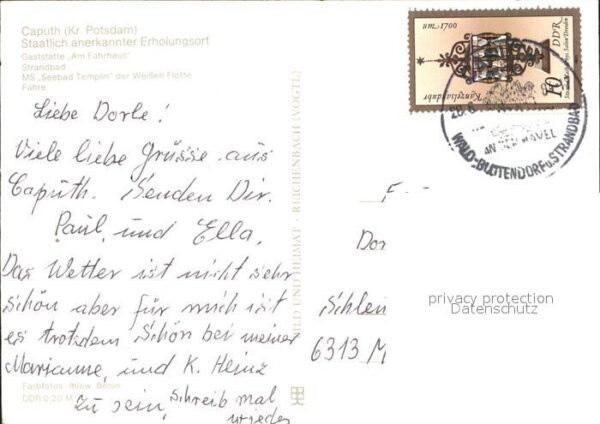 Caputh (Kr. Potsdam)
Staatlich anerkannter Erholungsort
Gaststätte „Am Fährhaus"
Strandbad
MS „Seebad Templin" der Weißen Flotte
Fähre
Liebe Dorle!
Viele liebe Grüsse aus
Caputh. Senden Dir.
Paul, und Ella.
Das Wetter ist nicht sehr
schön aber für mich ist
es trotzdem schön bei meiner
Marianne, und K. Heinz
zu sein, schreib mal
wieder
Farbfotos: Ihlow, Berlin
DDR 0,20 M
BILD UND HEIMAT · REICHENBACH (VOGTL)
um 1700
Kanzelsanduhr
10
DDR
28.6.
AN DER HAVEL
WALD-BLÜTENDORF u. STRANDBAD
Dor
Schlen
6313 M
privacy protection
Datenschutz